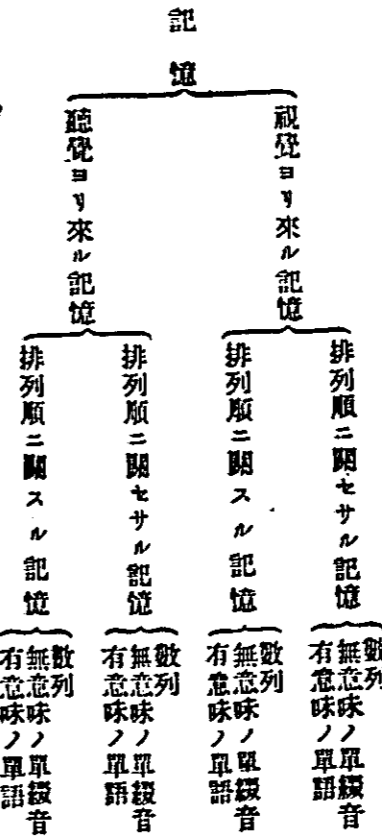 記憶
視覺ヨリ來ル記憶
排列順ニ關セサル記憶
數列
無意味ノ單綴音
有意味ノ單語
排列順ニ關スル記憶
數列
無意味ノ單綴音
有意味ノ單語
聽覺ヨリ來ル記憶
排列順ニ關セサル記憶
數列
無意味ノ單綴音
有意味ノ單語
排列順ニ關スル記憶
數列
無意味ノ單綴音
有意味ノ單語